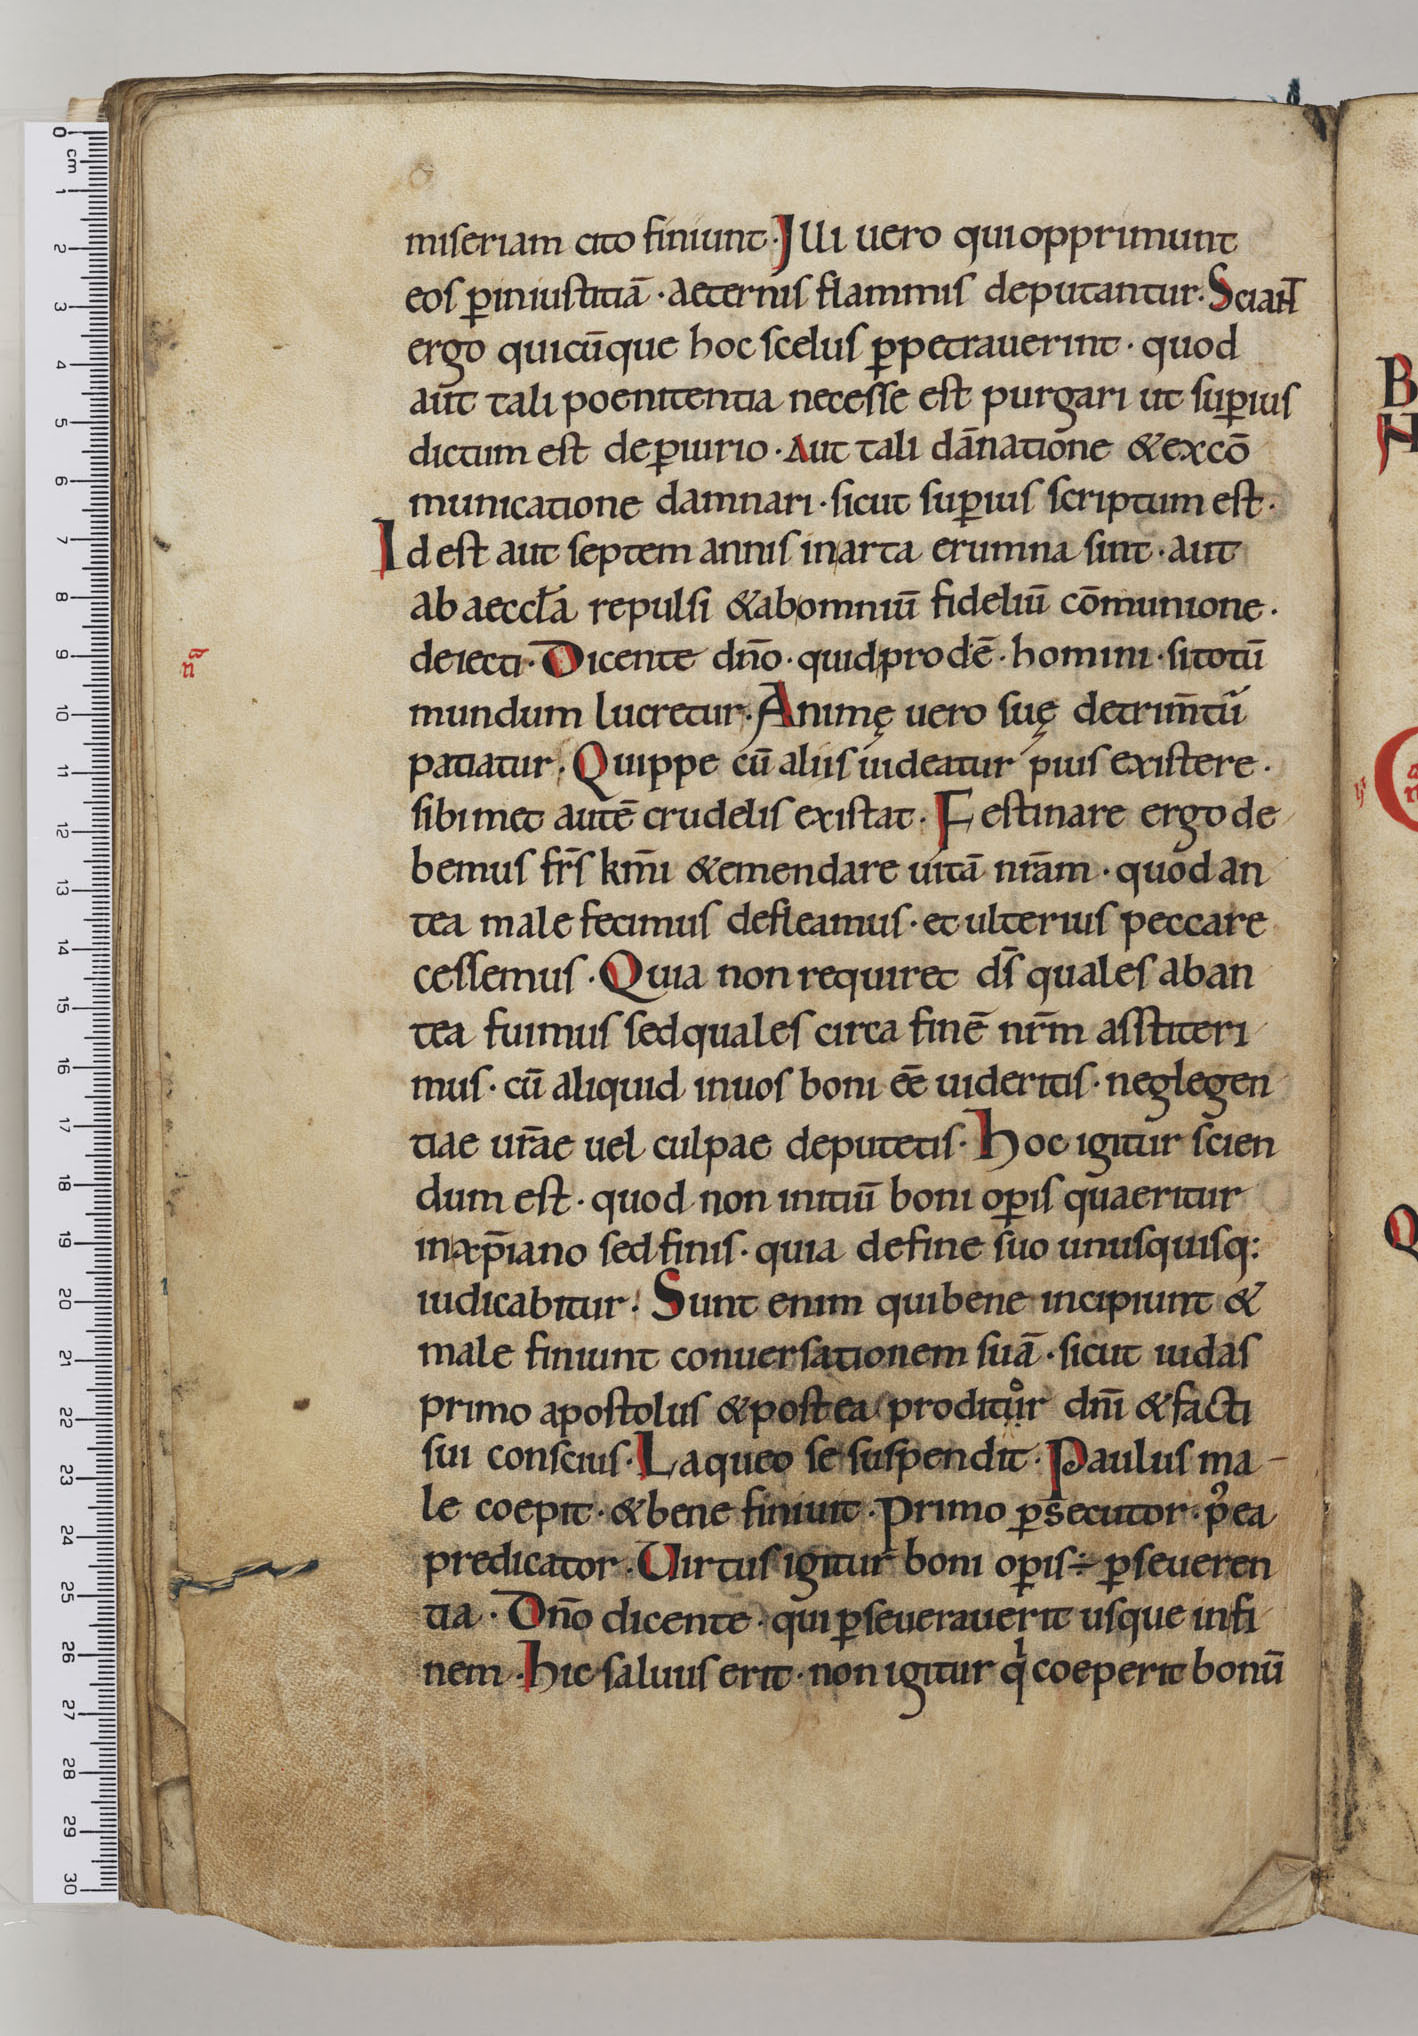 miseriam cito finiunt· Illi uero qui opprimunt
eos ꝑ iniustitiā· aeternis flammis deputantur· Sciant
ergo quicūque hoc scelus ꝑpetrauerint· quod
aut tali poenitentia necesse est purgari ut suꝑius
dictum est de ꝑiurio· Aut tali dānatione & excō
municatione damnari· sicut suꝑius scriptum est·
Id est aut septem annis in arta erumna sint· aut
ab aeccła repulsi & ab omniū fideliū cōmunione·
deiecti· Dicente dn̄o· quid prodē· homini· si totū
n̄
mundum lucretur· Animę uero suę detrim̄tū
patiatur· Quippe cū aliis uideatur pius existere·
sibimet autē crudelis existat· Festinare ergo de
bemus fr̄s km̄i & emendare uitā nr̄am· quod an
tea male fecimus defleamus· et ulterius peccare
cessemus· Quia non requiret ds̄ quales ab an
tea fuimus sed quales circa finē nr̄m asstiteri
mus· cū aliquid in uos boni eē uideritis· neglegen
tiae ur̄ae uel culpae deputetis· Hoc igitur scien
dum est· quod non initiū boni oꝑis quaeritur
in xp̄iano sed finis· quia de fine suo unusquisq:
iudicabitur· Sunt enim qui bene incipiunt &
male finiunt conuersationem suā· sicut iudas
primo apostolus & postea proditor dn̄i & facti
sui conscius· Laqueo se suspendit· Paulus ma-
le coepit· & bene finiuit· Primo ꝑsecutor· p᷒ea
predicator· Uirtus igitur boni oꝑis ÷ ꝑseueren
tia· Dn̄o dicente· qui ꝑseuerauerit usque in fi
nem· Hic saluus erit· non igitur qͥ coeperit bonū